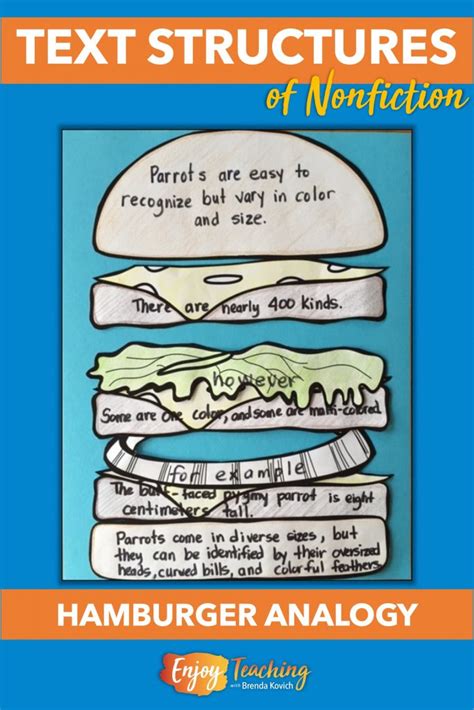 TEXT STRUCTURES
of Nonfiction
Parrots are easy to
recognize but vary in color
and size.
There are nearly 400 kinds.
however
Some are one color, and some are multi-colored.
for example
The buff-faced pygmy parrot is eight
centimeters tall.
Parrots come in diverse sizes, but
they can be identified by their oversized
heads, curved bills, and colorful feathers.
HAMBURGER ANALOGY
Enjoy Teaching
WITH Brenda Kovich